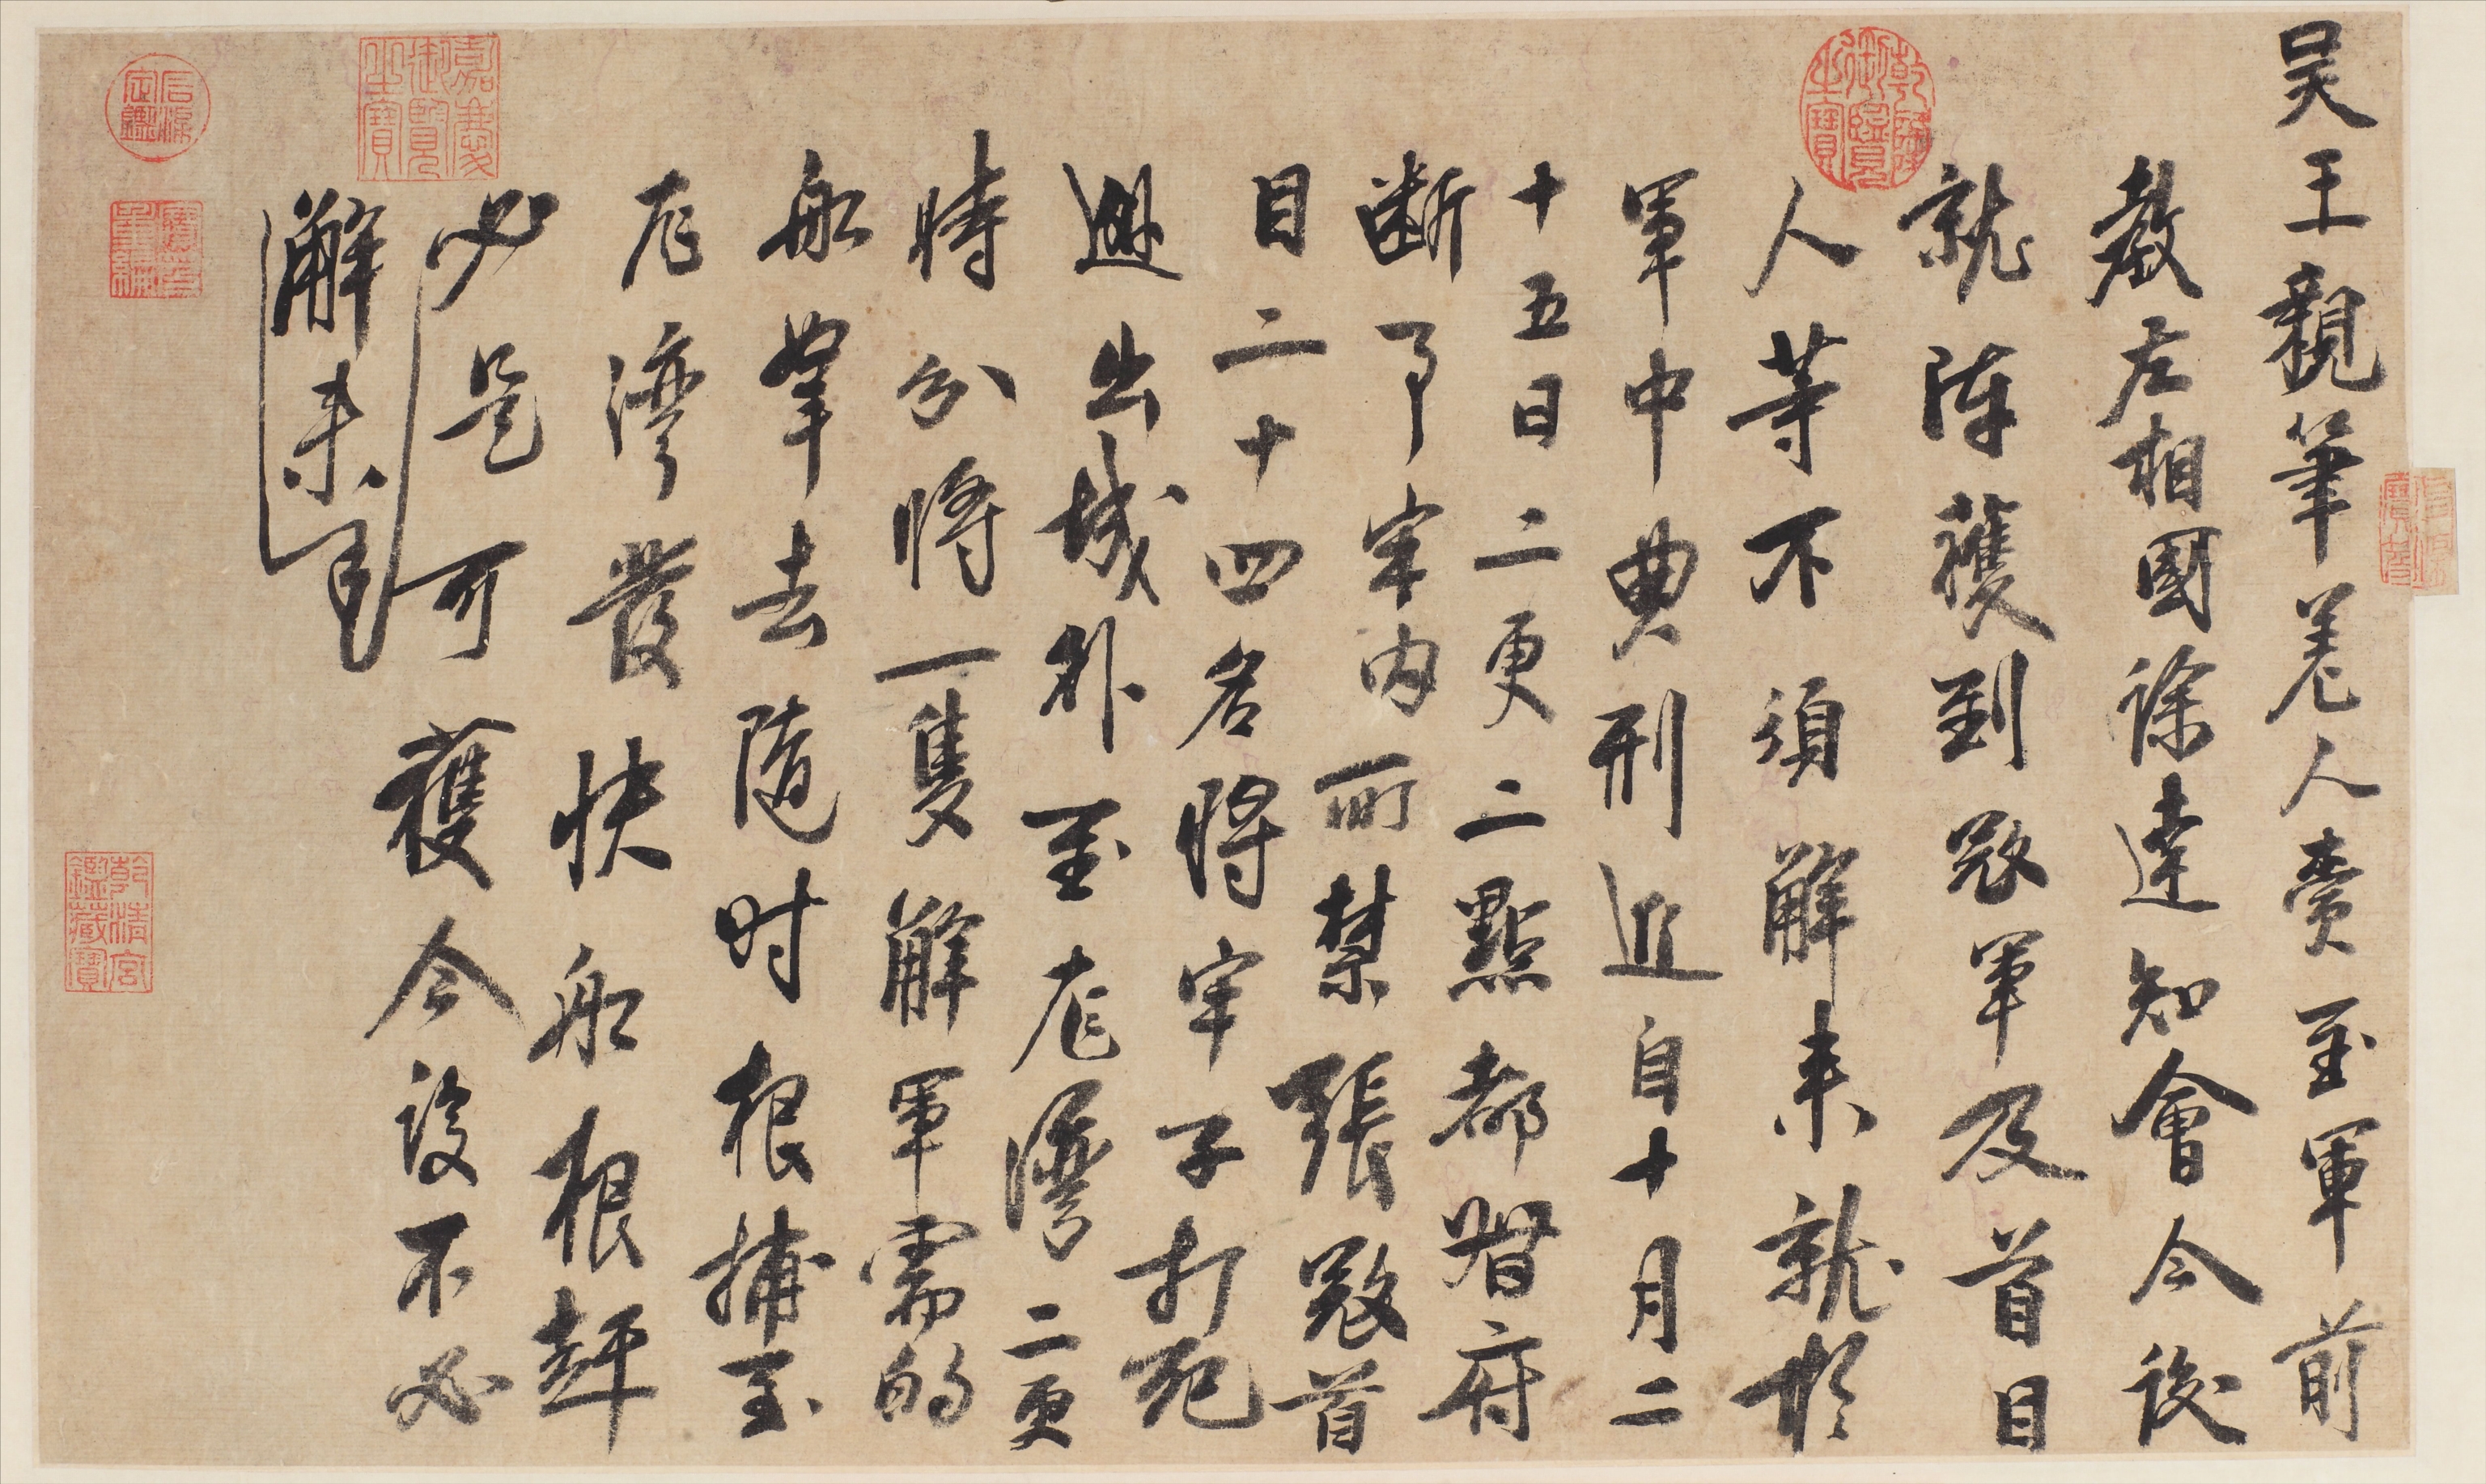 吳王親筆差人賫至軍前
教左相國徐達知會今後
就陣獲到寇軍及首目
人等不須解來就於
軍中典刑近自十月二
十五日二更二點都督府
斷事牢內所禁張寇首
目二十四名將牢子打死
出城外至龍灣二更
時分將一隻解軍需的
船拏去隨时根捕至
龍灣發快船根趕
必是可獲今後不必
解來
乾隆御覽之寶
嘉慶御覽之寶
石渠定鑑
寶笈重編
乾清宮鑑藏寶
石渠寶笈